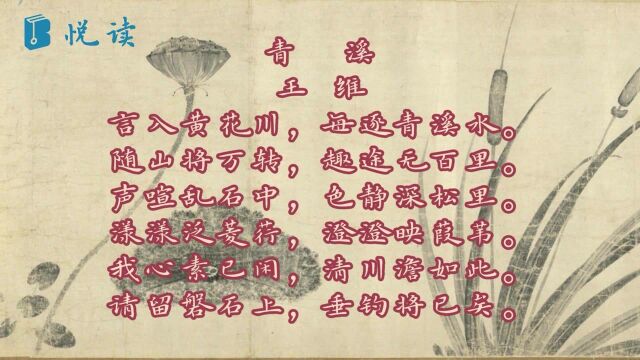 悦读
青 溪
王 维
言入黄花川，每逐青溪水。
随山将万转，趣途无百里。
声喧乱石中，色静深松里。
漾漾泛菱荇，澄澄映葭苇。
我心素已闲，清川澹如此。
请留磐石上，垂钓将已矣。